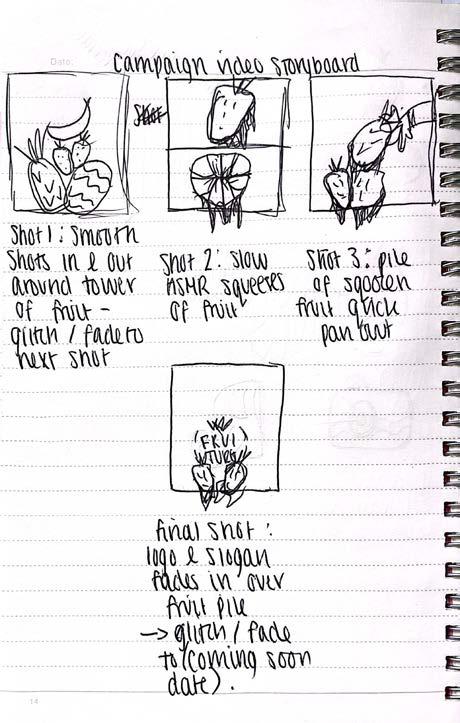 Date:
Campaign video Storyboard
Shot 1: Smooth
Shots in & out
around tower
of fruit -
glitch / fade to
next shot
Shot 2: slow
ASMR squeezes
of fruit
Shot 3: pile
of sqooten
fruit quick
pan out
(FRUI)
final shot:
logo & slogan
fades in over
fruit pile
-> glitch / fade
to (coming soon
date).
14